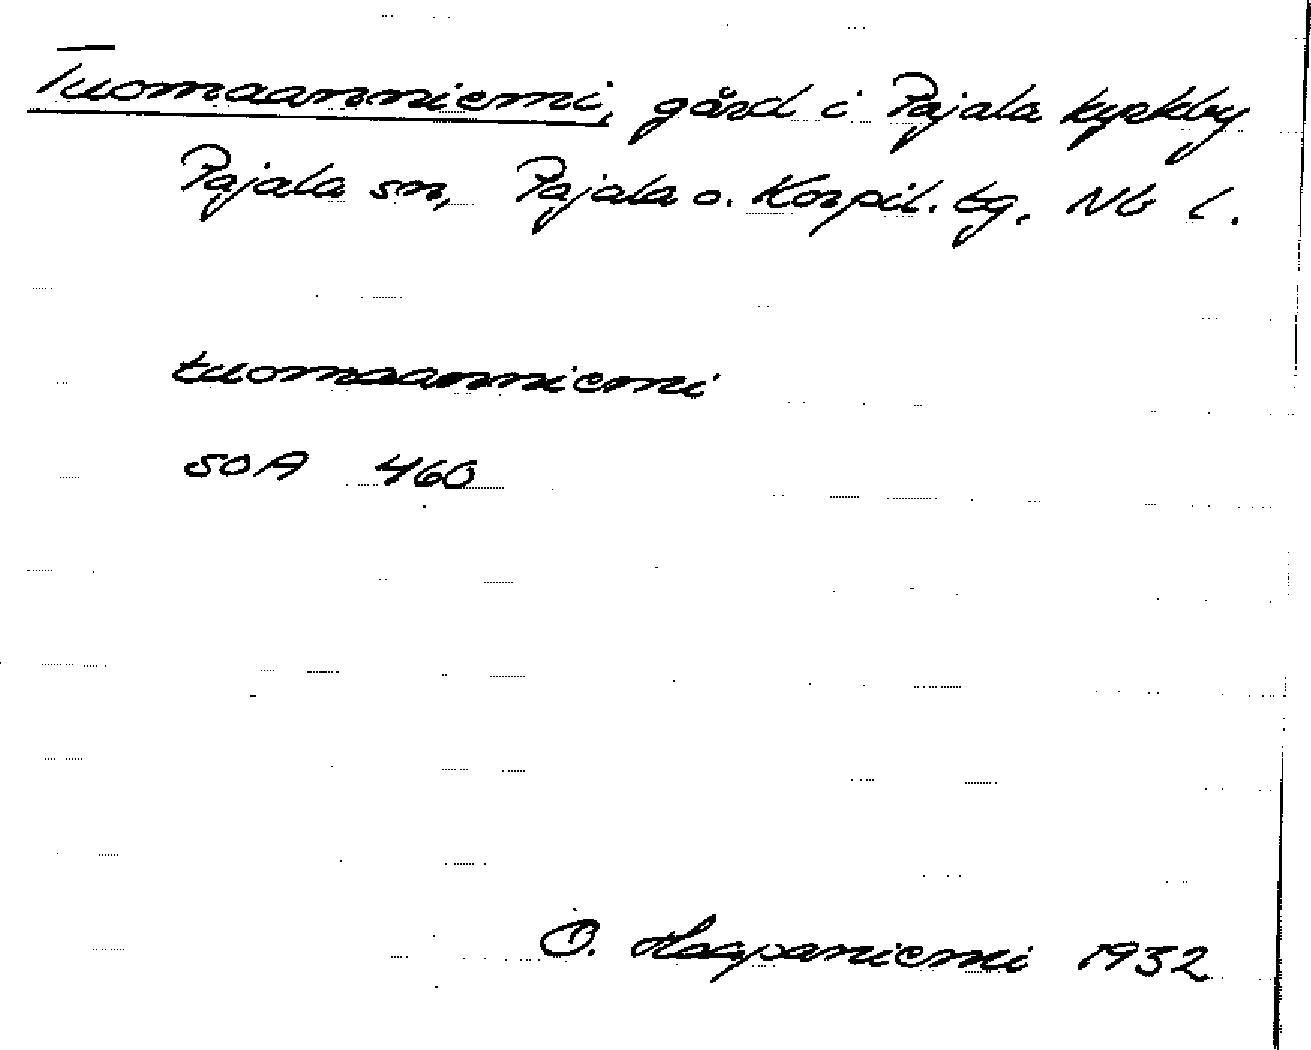 Tuomaanniemi, gård i Pajala kyrkby
Pajala sn, Pajala o. Korpil. tg, Nb l.
tuomaanniemi
SOA 460
O. Haapaniemi 1932